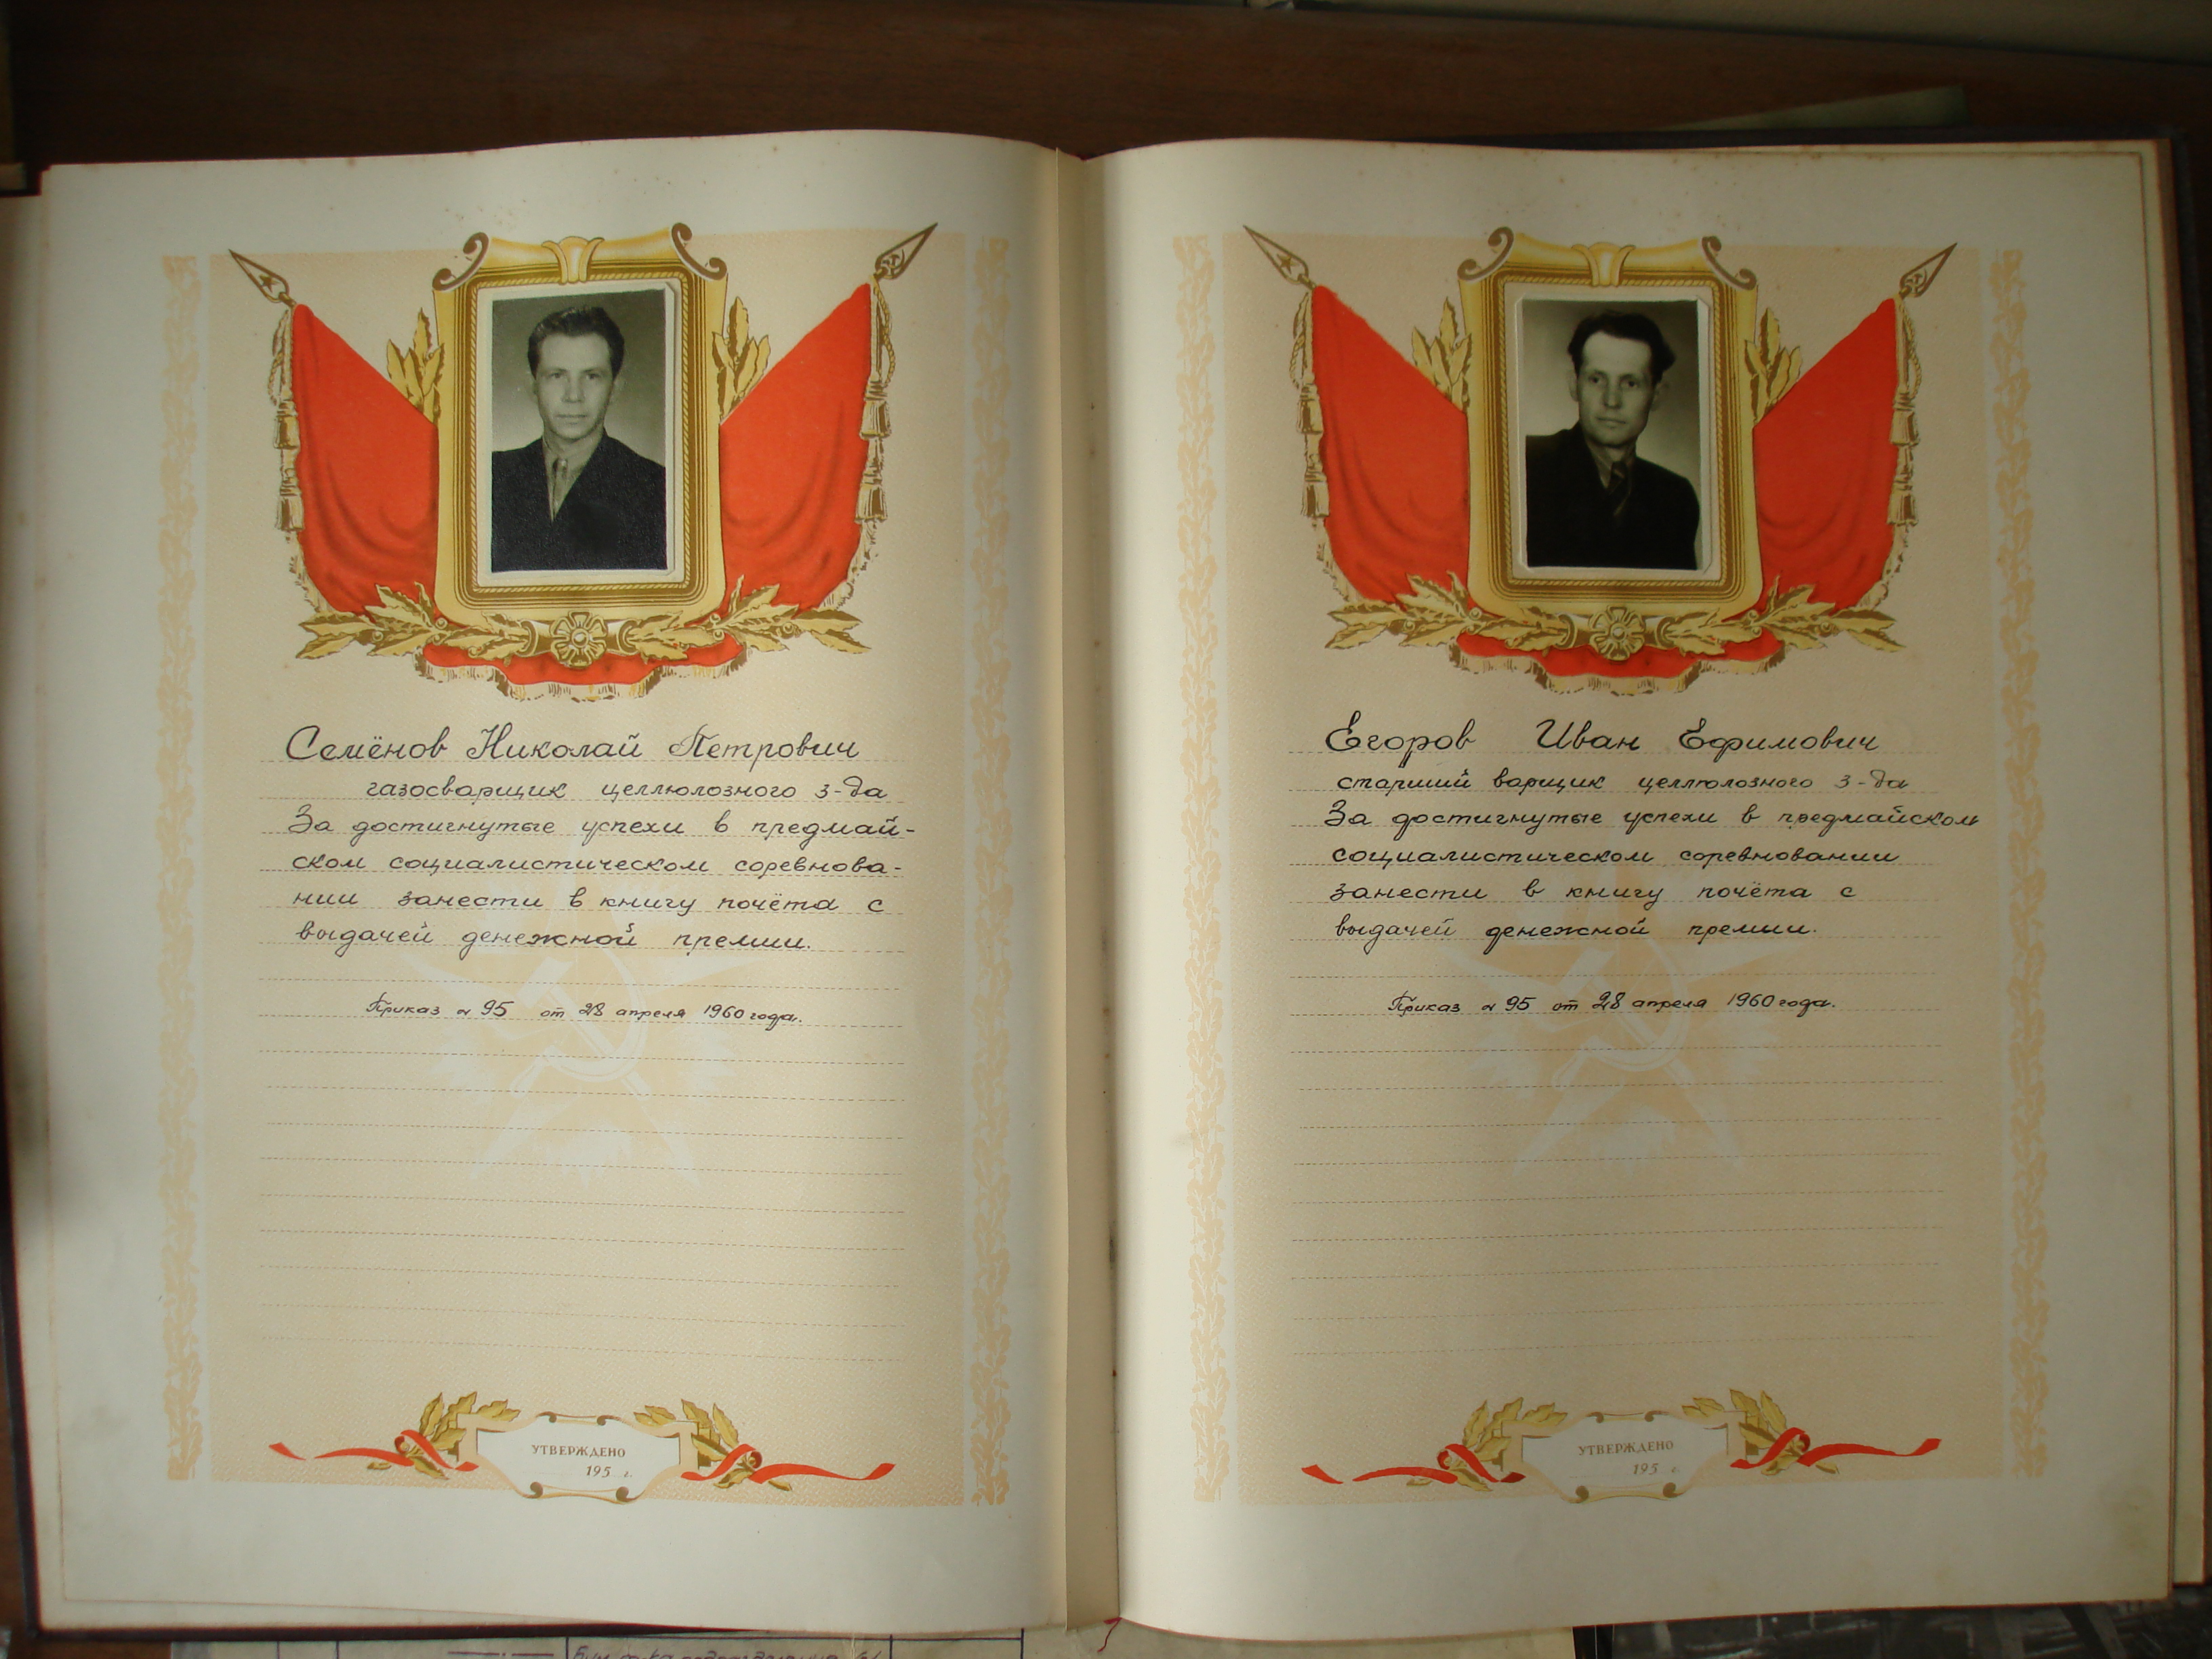 Семёнов Николай Петрович
газосварщик целлюлозного з-да
За достигнутые успехи в предмай-
ском социалистическом соревнова-
нии занести в книгу почёта с
выдачей денежной премии.
Приказ № 95 от 28 апреля 1960 года.
УТВЕРЖДЕНО
195 г.
Егоров Иван Ефимович
старший варщик целлюлозного з-да
За достигнутые успехи в предмайском
социалистическом соревновании
занести в книгу почёта с
выдачей денежной премии.
Приказ № 95 от 28 апреля 1960 года.
УТВЕРЖДЕНО
195 г.